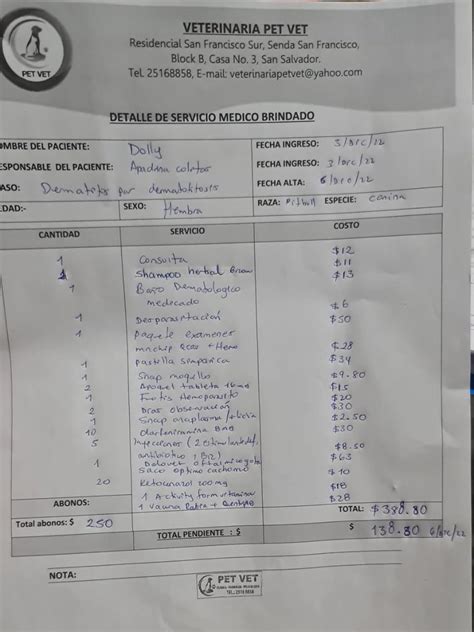 VETERINARIA PET VET
Residencial San Francisco Sur, Senda San Francisco,
Block B, Casa No. 3, San Salvador.
Tel. 25168858, E-mail: veterinariapetvet@yahoo.com
PET VET
DETALLE DE SERVICIO MEDICO BRINDADO
OMBRE DEL PACIENTE: Dolly FECHA INGRESO: 3/DIC/22
ESPONSABLE DEL PACIENTE: FECHA INGRESO: 3/DIC/22
ASO: Dermatitis por FECHA ALTA: 6/DIC/22
EDAD:- SEXO: Hembra RAZA: Pitbull ESPECIE: canina
CANTIDAD SERVICIO COSTO
1 Consulta $12
1 Shampoo herbal $11
1 Baño Dermatologico $13
medicado
1 Desparasitación $6
1 paquete examenes $50
+ Hemo
1 pastilla simparica $28
1 Snap moquillo $34
2 Apoquel tableta 16mg $9.80
1 Frotis Hemoparasito $15
2 Dias observación $20
1 Snap anaplasma $30
10 $2.50
5 Inyecciones (2 $30
antibiotico
1 $8.50
$63
20 Ketoconazol 200mg $10
1 Activity form vitaminas $18
1 Vacuna Rabia + $28
ABONOS: TOTAL: $388.30
Total abonos: $ 250 $ 138.30 6/DIC/22
TOTAL PENDIENTE : $
NOTA:
PET VET